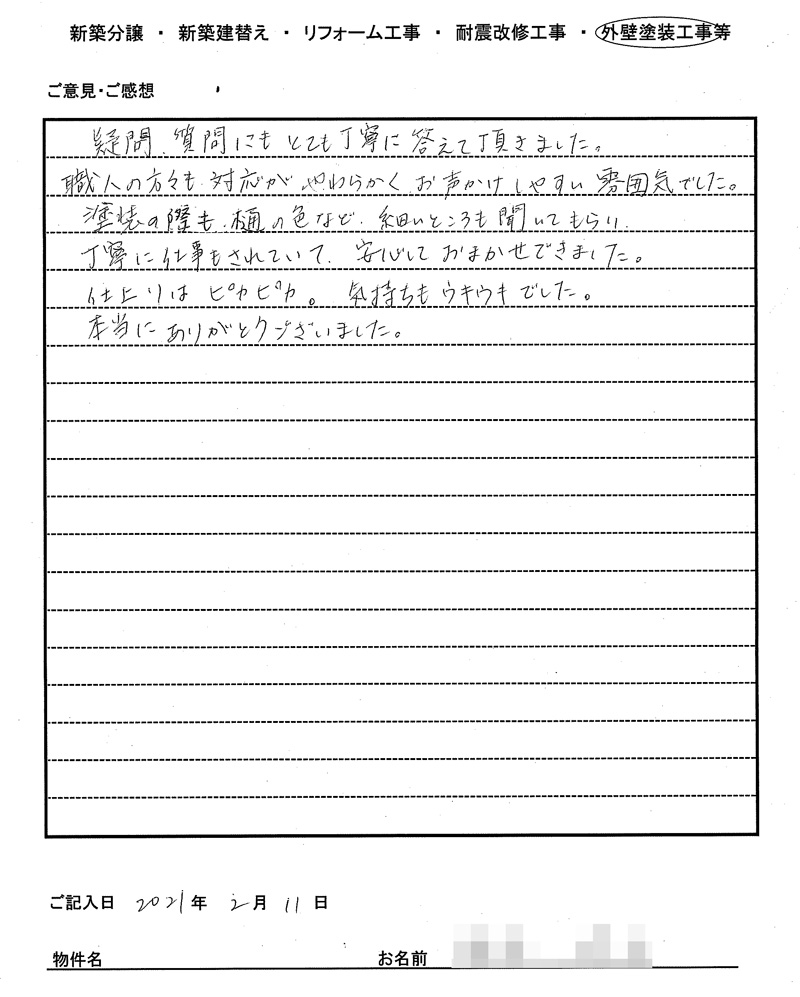 新築分譲 ・ 新築建替え ・ リフォーム工事 ・ 耐震改修工事 ・ 外壁塗装工事等
ご意見・ご感想
疑問、質問にもとても丁寧に答えて頂きました。
職人の方々も対応がやわらかくお声かけしやすい雰囲気でした。
塗装の際も、樋の色など、細いところも聞いてもらい、
丁寧に仕事もされていて、安心しておまかせできました。
仕上りはピカピカ。気持ちもウキウキでした。
本当にありがとうございました。
ご記入日 2021年 2月 11日
物件名 お名前